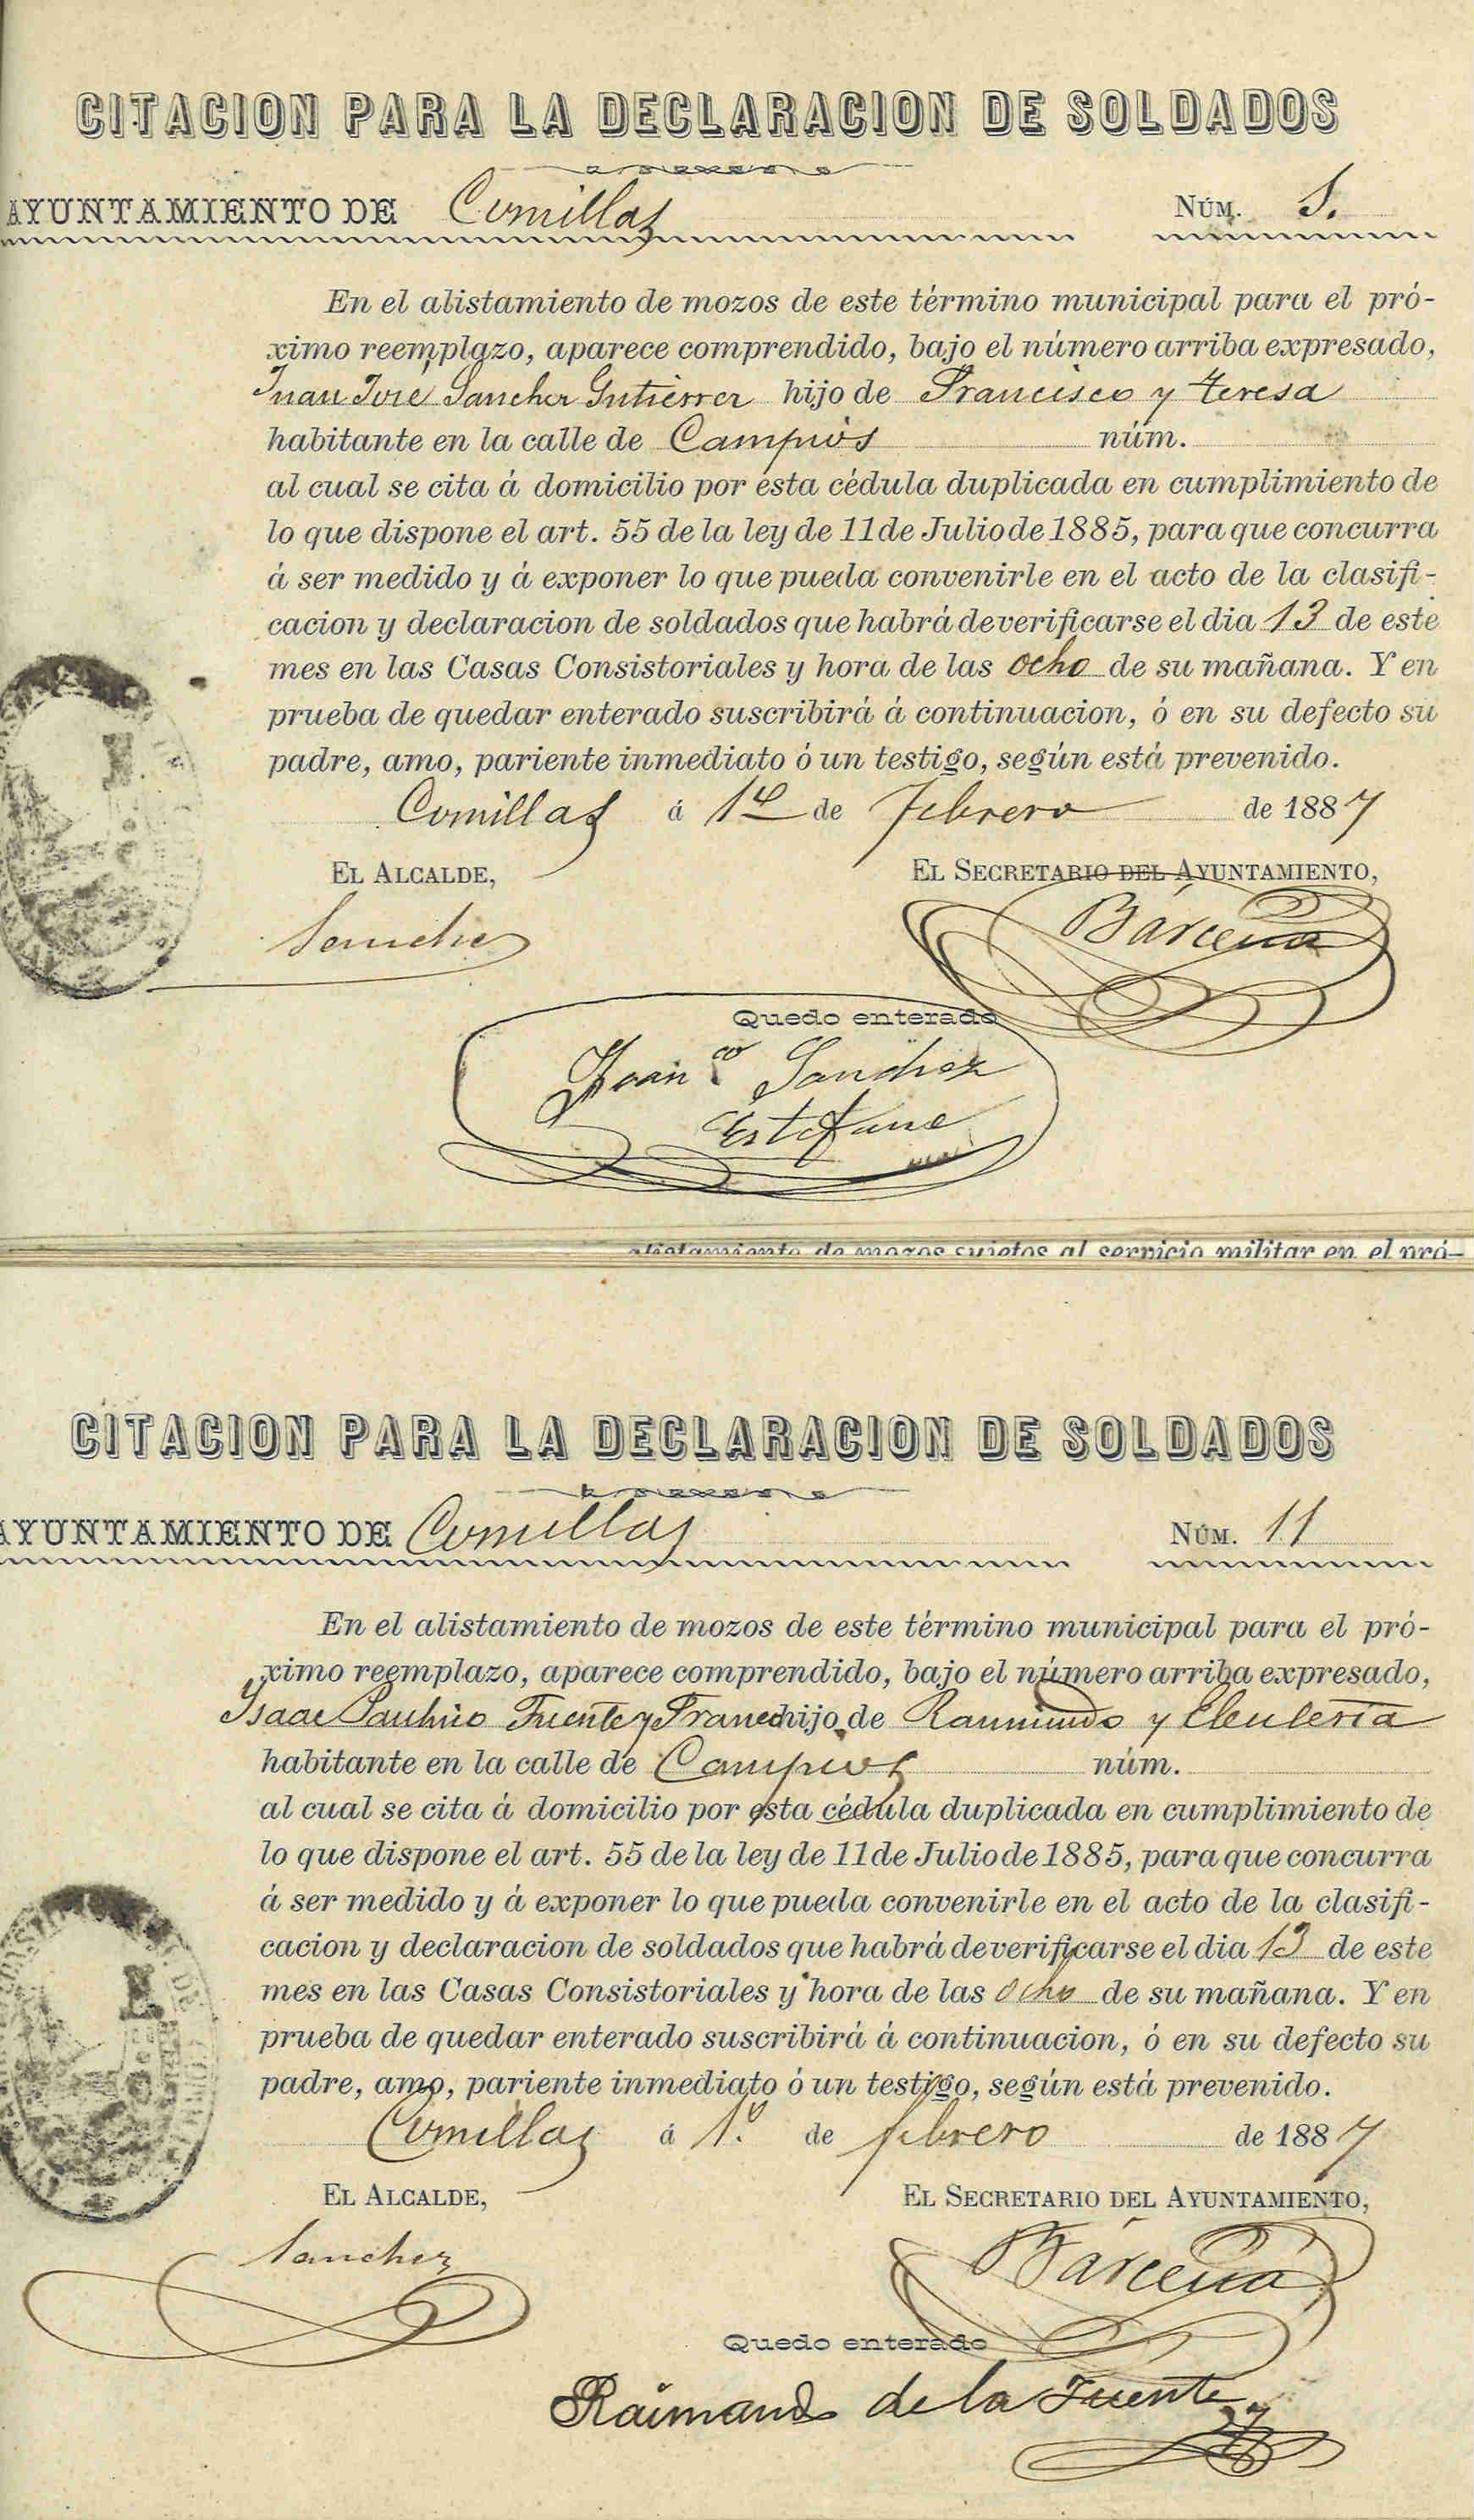 CITACION PARA LA DECLARACION DE SOLDADOS
AYUNTAMIENTO DE Comillas NÚM.
En el alistamiento de mozos de este término municipal para el pró-
ximo reemplazo, aparece comprendido, bajo el número arriba expresado,
Juan José Sanchez Gutierrez hijo de Francisco y Teresa
habitante en la calle de Campios núm.
al cual se cita á domicilio por esta cédula duplicada en cumplimiento de
lo que dispone el art. 55 de la ley de 11 de Julio de 1885, para que concurra
á ser medido y á exponer lo que pueda convenirle en el acto de la clasifi-
cacion y declaracion de soldados que habrá de verificarse el dia 13 de este
mes en las Casas Consistoriales y hora de las ocho de su mañana. Y en
prueba de quedar enterado suscribirá á continuacion, ó en su defecto su
padre, amo, pariente inmediato ó un testigo, según está prevenido.
Comillas á 1º de Febrero de 1887
EL ALCALDE, EL SECRETARIO DEL AYUNTAMIENTO,
Sanchez Bárcena
Quedo enterado
Franco Sanchez
alistamiento de mozos sujetos al servicio militar en el pró-
CITACION PARA LA DECLARACION DE SOLDADOS
AYUNTAMIENTO DE Comillas NÚM. 11
En el alistamiento de mozos de este término municipal para el pró-
ximo reemplazo, aparece comprendido, bajo el número arriba expresado,
Ysaac Paulino Fuente y hijo de Raimundo y Eleuleria
habitante en la calle de Campios núm.
al cual se cita á domicilio por esta cédula duplicada en cumplimiento de
lo que dispone el art. 55 de la ley de 11 de Julio de 1885, para que concurra
á ser medido y á exponer lo que pueda convenirle en el acto de la clasifi-
cacion y declaracion de soldados que habrá de verificarse el dia 13 de este
mes en las Casas Consistoriales y hora de las ocho de su mañana. Y en
prueba de quedar enterado suscribirá á continuacion, ó en su defecto su
padre, amo, pariente inmediato ó un testigo, según está prevenido.
Comillas á 1º de febrero de 1887
EL ALCALDE, EL SECRETARIO DEL AYUNTAMIENTO,
Sanchez Bárcena
Quedo enterado
Raimundo de la Fuente